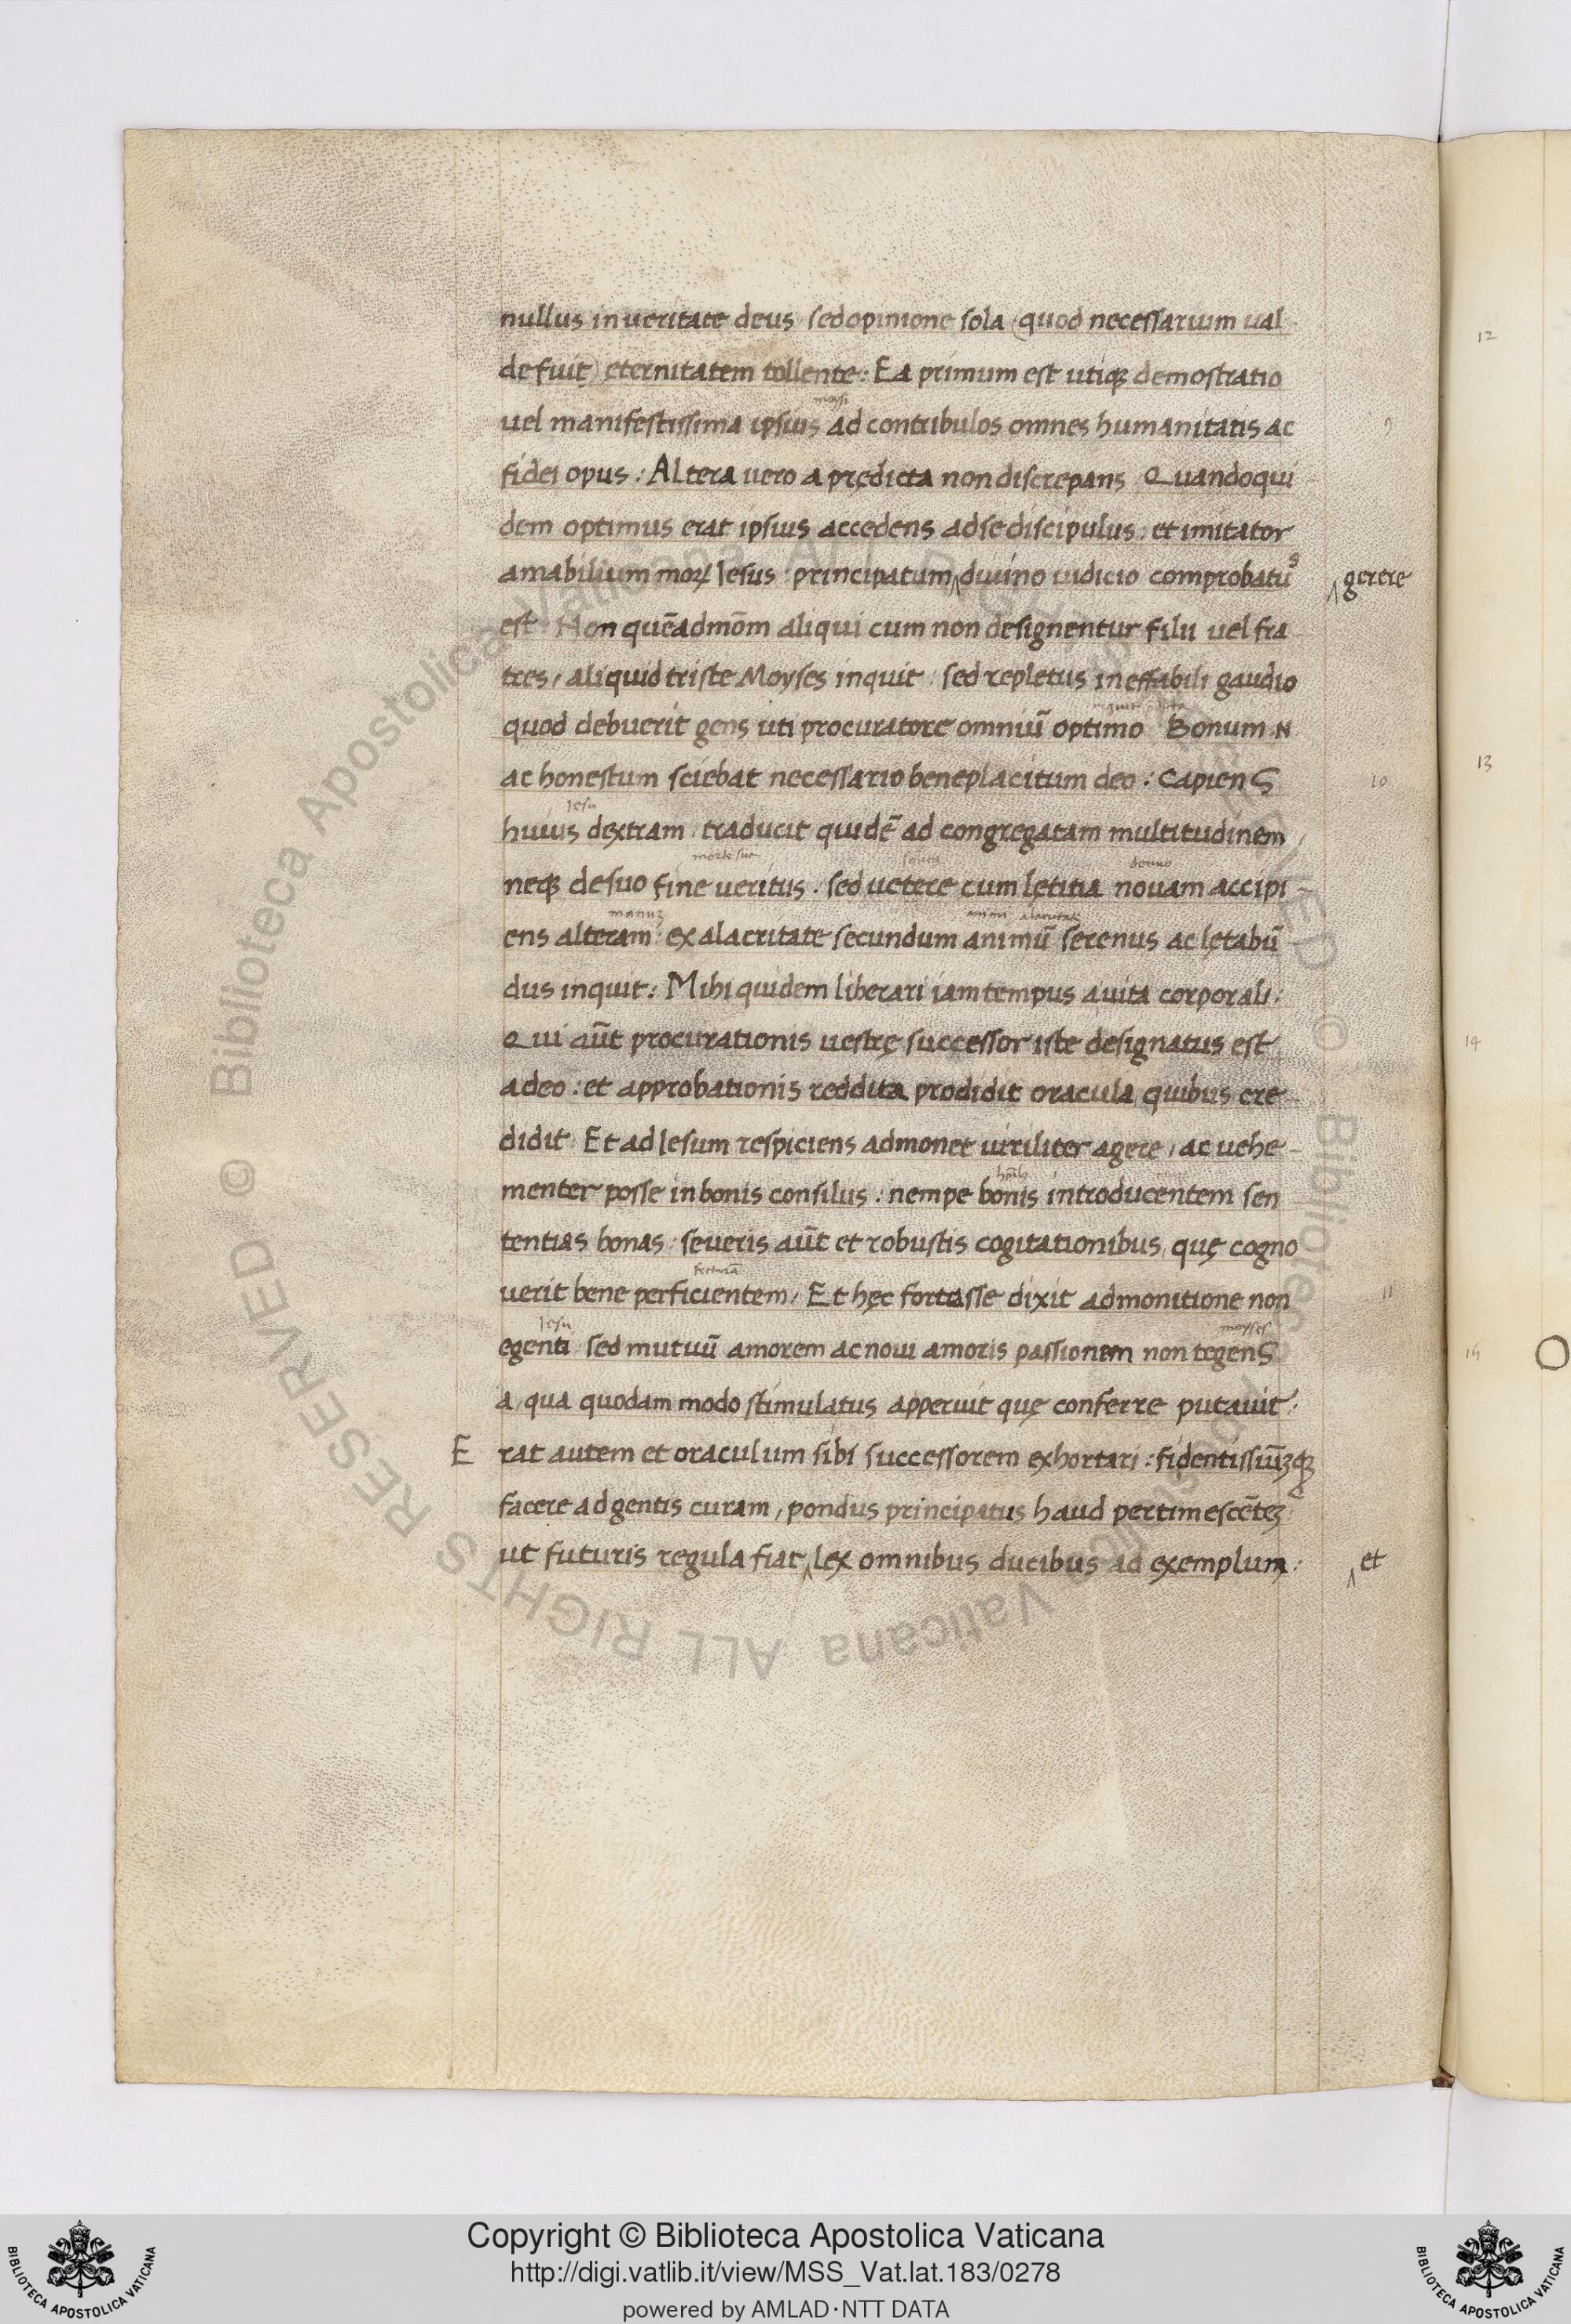 nullus in ueritate deus sed opinione sola (quod necessarium ual
de fuit) ęternitatem tollente: Ea primum est utiqꝫ demostratio
moysi
uel manifestissima ipsius ad contribulos omnes humanitatis ac
9
fidei opus: Altera uero a predicta non discrepans Quandoqui
dem optimus erat ipsius accedens ad se discipulus: et imitator
amabilium moꝝ Iesus: principatum ‸ diuino iudicio comprobatus
‸ gerere
est Non quēadmōm aliqui cum non designentur filii uel fra
tres, aliquid triste Moyses inquit: sed repletus ineffabili gaudio
quod debuerit gens uti procuratore omniū optimo Bonum N
ac honestum sciebat necessario beneplacitum deo: CapienS
10
Iesu
huius dextram: traducit quidē ad congregatam multitudinem,
morte sua
domo
neqꝫ de suo fine ueritus. sed uetere cum lętitia nouam accipi-
manuꝫ
animi alacritatē
ens alteram: ex alacritate secundum animū serenus ac lętabū-
dus inquit: Mihi quidem liberari iam tempus a uita corporali:
Qui aūt procurationis uestrę successor iste designatus est
a deo: et approbationis reddita prodidit oracula, quibus cre-
didit: Et ad Iesum respiciens admonet uiriliter agere, ac uehe-
menter posse in bonis consiliis: nempe bonis introducentem sen
tentias bonas: seueris aūt et robustis cogitationibus, quę cogno
uerit bene perficientem, Et hęc fortasse dixit admonitione non
11
Iesu
moyses
egenti sed mutuū amorem ac noui amoris passionem non tegenS
a qua quodam modo stimulatus apperuit quę conferre putauit:
E rat autem et oraculum sibi successorem exhortari: fidentissiūꝫqꝫ
facere ad gentis curam, pondus principatus haud pertimescēteꝫ
ut futuris regula fiat ‸ lex omnibus ducibus ad exemplum:
‸ et
12
13
14
15
© Biblioteca Apostolica Vaticana ALL RIGHTS RESERVED
Copyright © Biblioteca Apostolica Vaticana
http://digi.vatlib.it/view/MSS_Vat.lat.183/0278
powered by AMLAD·NTT DATA
BIBLIOTECA APOSTOLICA VATICANA
BIBLIOTECA APOSTOLICA VATICANA